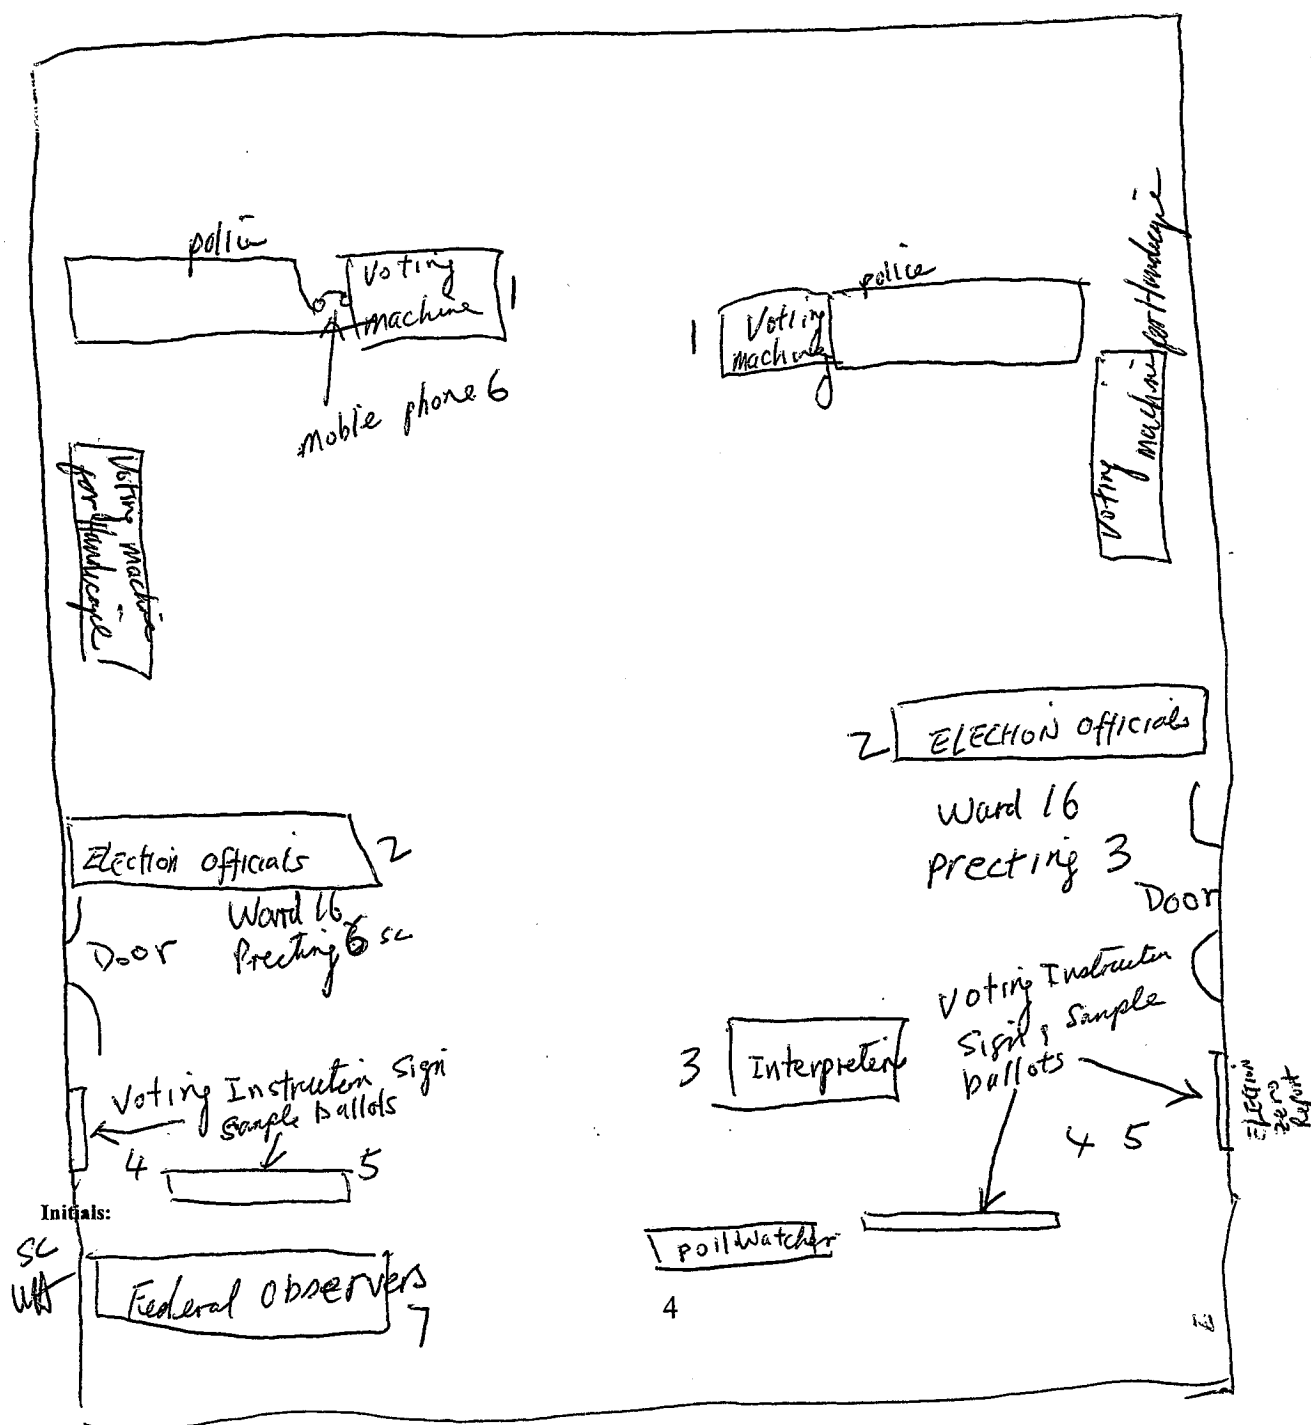 police
Voting
machine
1
mobile phone 6
police
1
Voting
machine
Voting machine for Handicape
Voting machine
for Handicape
2
ELECTION Officials
Ward 16
Precting 3
Door
Election Officials
2
Ward 16
Precting 6 SC
Door
Voting Instruction Sign
Sample ballots
4
5
3
Interpreters
Voting Instruction
Sign, Sample
ballots
4 5
ELECTION
Zero
Report
Initials:
SC
Federal Observers
7
Poll Watcher
4